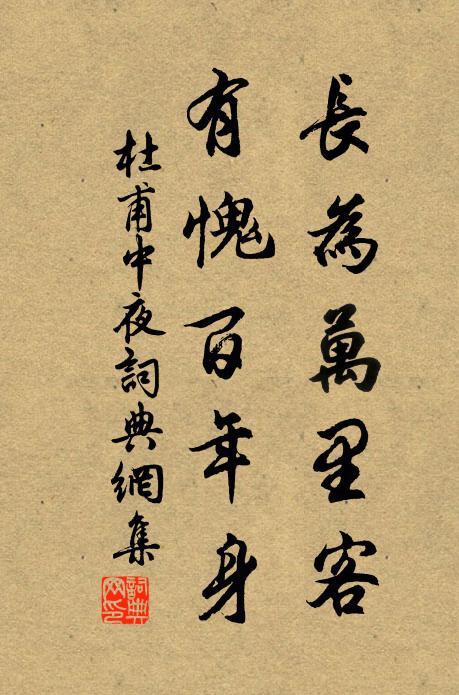 長為萬里客
有愧百年身
杜甫中夜詞典網集
詞典
网印